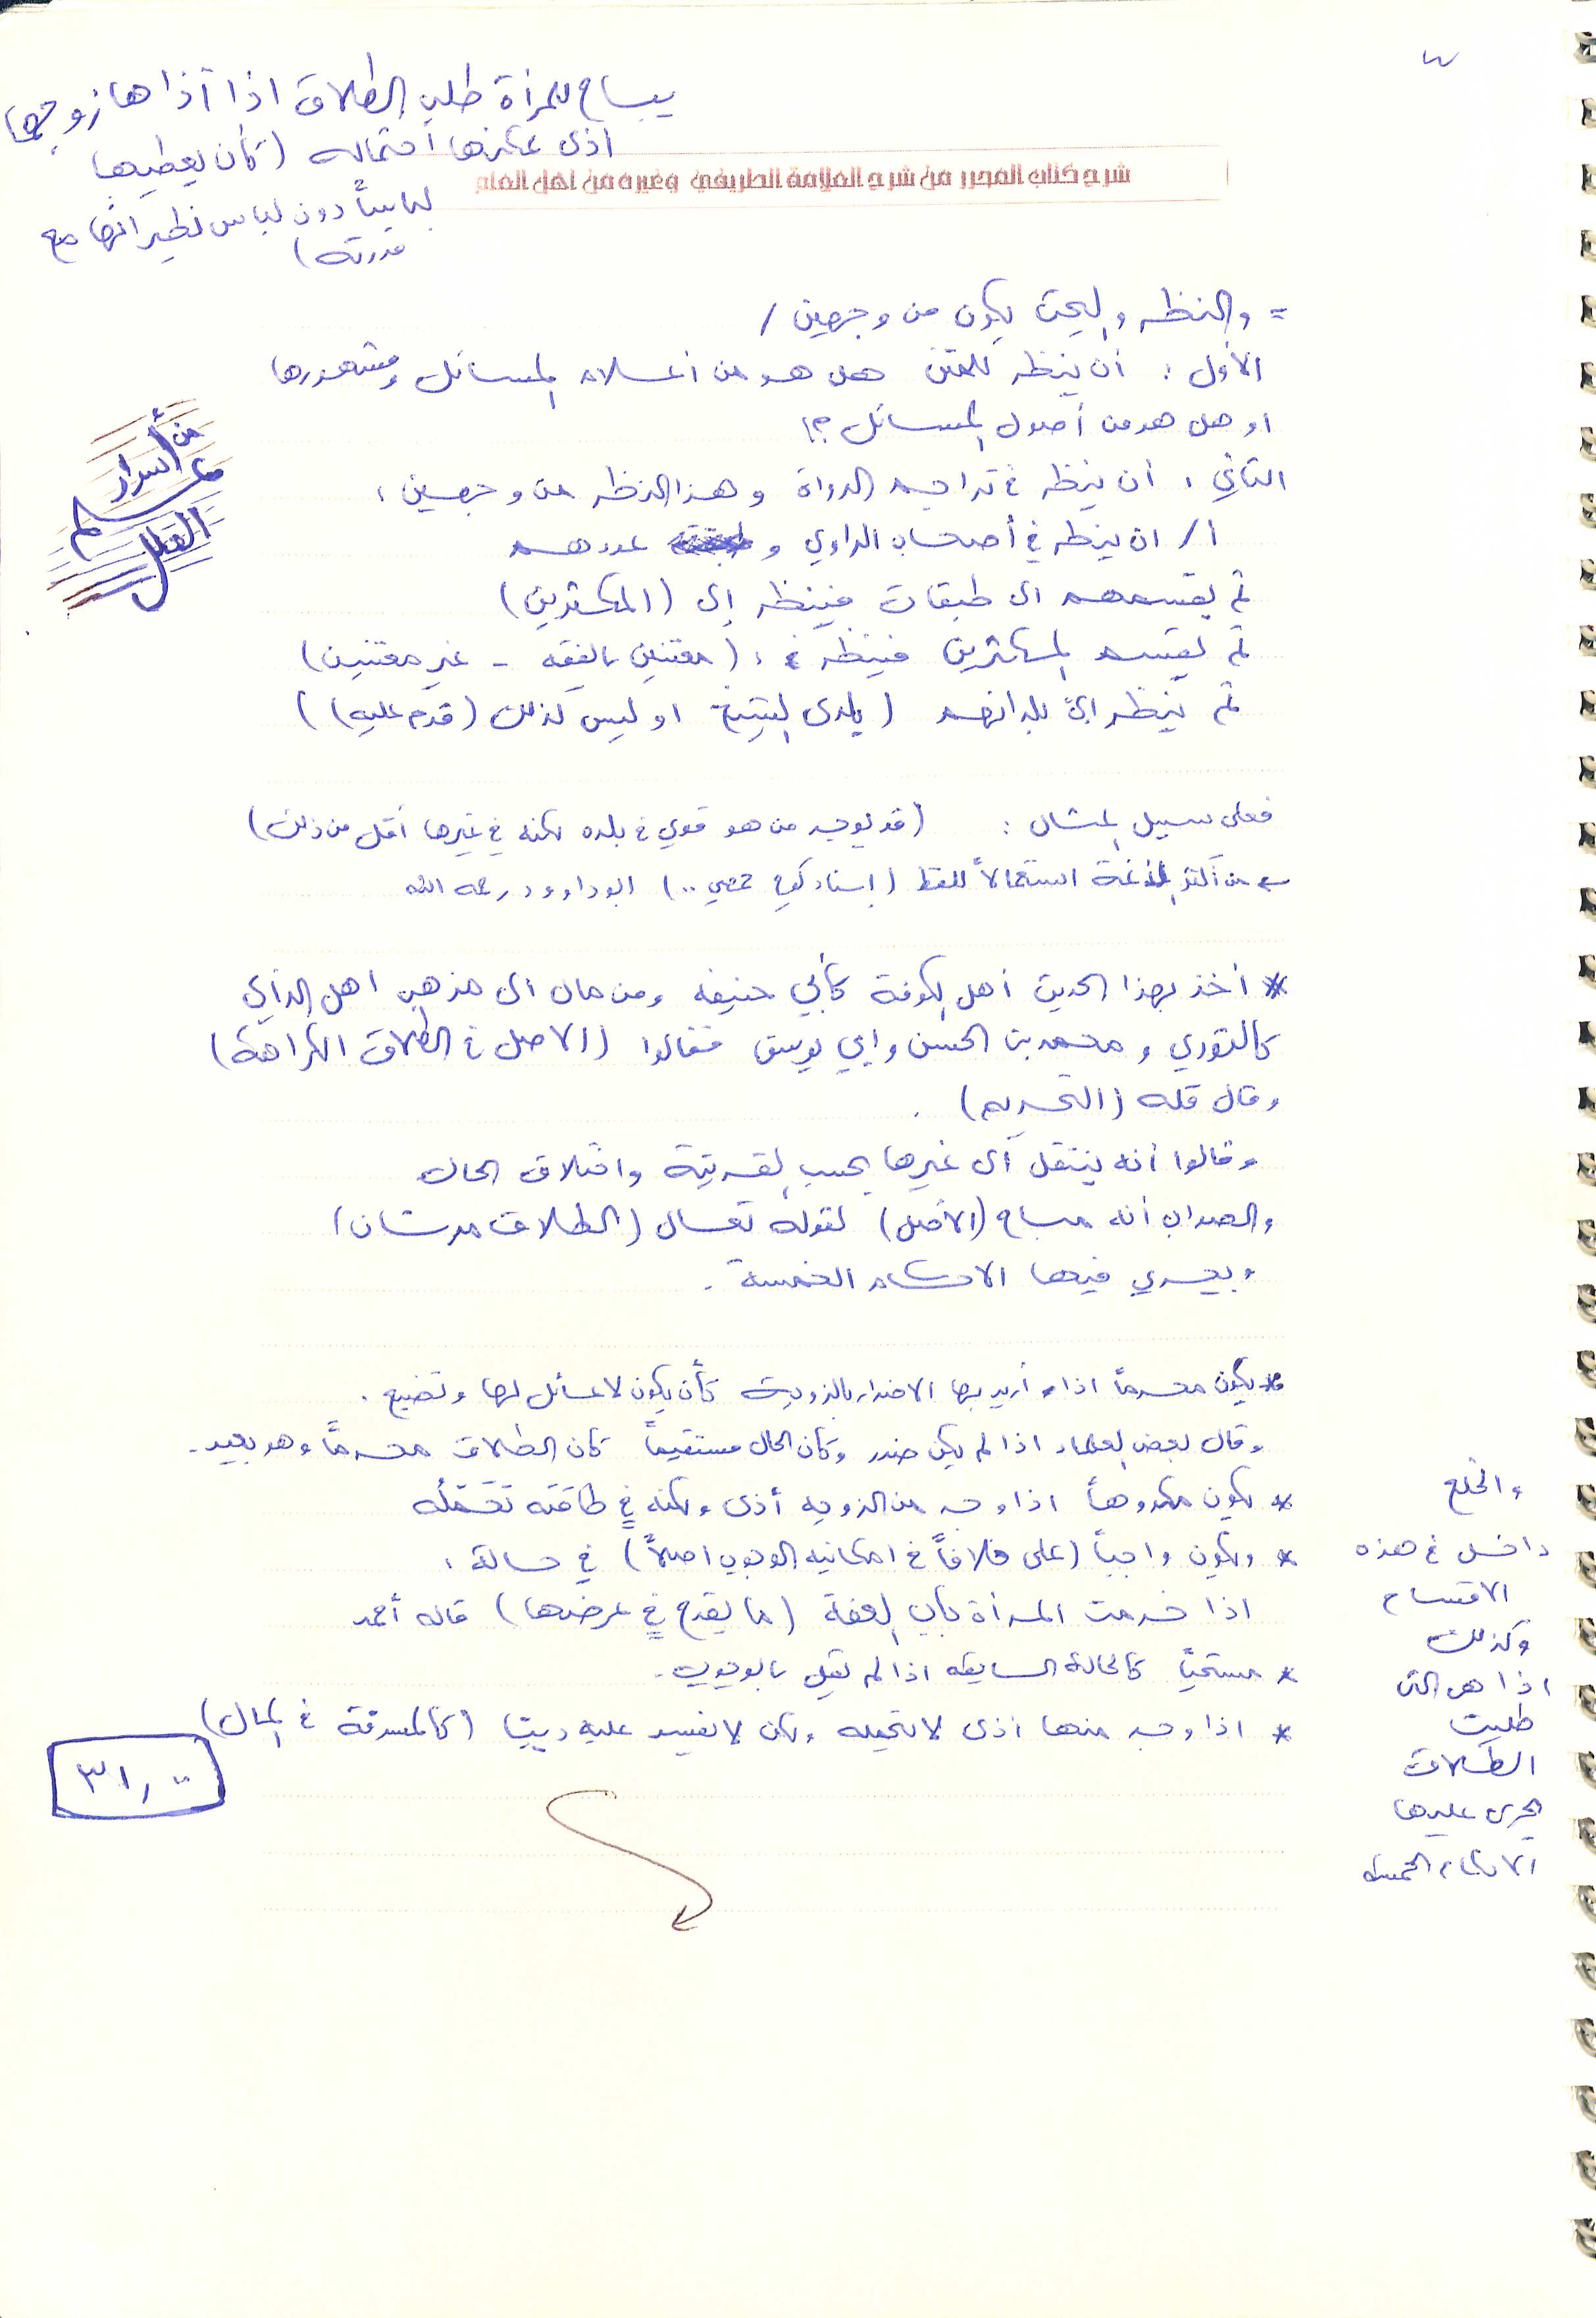 ٣
يباح للمرأة طلب الطلاق اذا آذاها زوجها
اذى يمكنها احتماله (كأن يعطيها
لباساً دون لباس نظيراتها مع
قدرته)
شرح كتاب المحرر من شرح العلامة الطريفي وغيره من اهل العلم
= والنظر والبحث يكون من وجهين /
الأول : أن ينظر للمتن هل هو من أعلام المسائل ومشهورها
او هل هو من أصول المسائل ؟!
الثاني : أن ينظر في تراجم الرواة وهذا النظر من وجهين :
أ / ان ينظر في أصحاب الراوي و عددهم
ثم يقسمهم الى طبقات فينظر إلى (المكثرين)
ثم يقسم المكثرين فينظر في : (معتنين بالفقه - غير معتنين)
ثم ينظر الى بلدانهم (بلدي الشيخ او ليس كذلك (قدم عليه))
من أسرار
علم
العلل
فعلى سبيل المثال : (قد يوجد من هو قوي في بلده لكنه في غيرها أقل من ذلك)
من أكثر الأئمة استعمالاً للفظ (إسناد كوفي حمصي ..) ابو داوود رحمه الله
* أخذ بهذا الحديث أهل الكوفة كأبي حنيفة ومن مال الى مذهب اهل الرأي
كالثوري و محمد بن الحسن وابي يوسف فقالوا (الاصل في الطلاق الكراهة)
وقال قلة (التحريم) .
وقالوا أنه ينتقل الى غيرها بحسب القرينة واختلاف الحال
والصواب أنه مباح (الأصل) لقوله تعالى (الطلاق مرتان)
ويجري فيها الاحكام الخمسة .
* يكون محرماً اذا أريد بها الاضرار بالزوجة كأن يكون لا عائل لها وتضيع .
وقال بعض العلماء اذا لم يكن ضرر وكان الحال مستقيماً كان الطلاق محرماً وهو بعيد .
* يكون مكروهاً اذا وجد من الزوجه أذى ولكنه في طاقته تحمّله
* ويكون واجباً (على خلافاً في امكانيه الوجوب اصلاً) في حالة :
اذا خرمت المرأة باب العفة (ما يقدح في عرضها) قاله أحمد
* مستحباً كالحالة السابقه اذا لم نقل بالوجوب .
* اذا وجد منها اذى لا يتحمله ولكن لا تفسد عليه دينا (كالسرقة في المال)
والخلع
داخل في هذه
الاقسام
وكذلك
اذا هي التي
طلبت
الطلاق
يجرى عليها
الاحكام الخمسة
٣١,٠٠